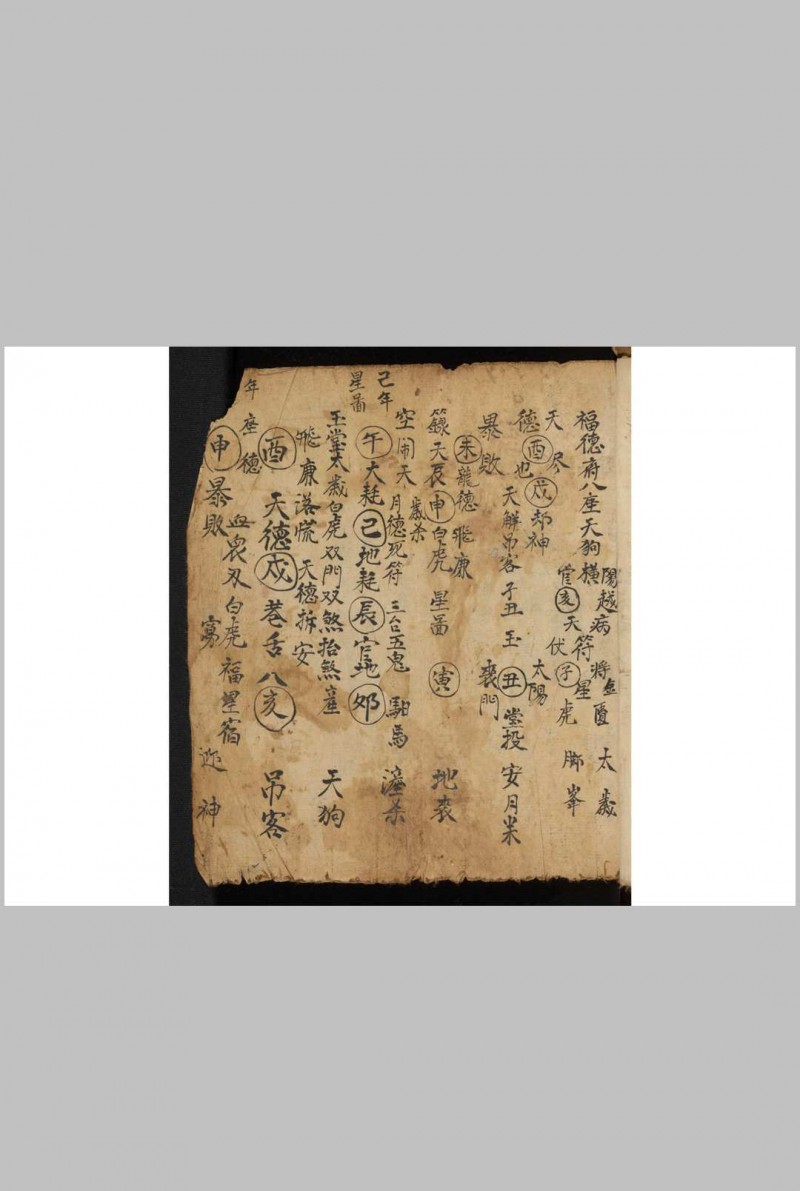 福德府八座天狗橫陽越病將金酉太歲
官亥天符星
天尽伏子虎脚峯
德酉也戌却神太陽
天解吊客子丑玉丑堂投安月米
暴敗喪門
未龍德飛廉
籙天哀申白虎星啚寅地喪
歲杀
空闹天月德死符三台五鬼馹馬
己年
星啚
午大耗己地耗辰官地卯
玉堂太歲白虎双門双煞抬煞天狗
飛廉落慌天德拆安
酉天德戌巷舌八亥吊客
年
座德
血刃白虎福星宿
申暴敗寡迎神